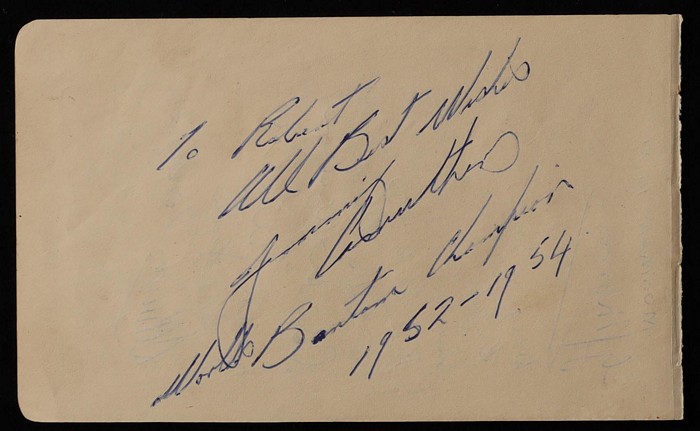 To Robert
All Best Wishes
Jimmy
Carruthers
World Bantam Champion
1952-1954